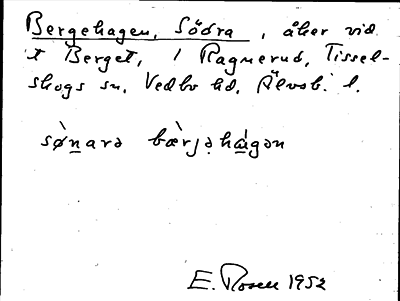 Bergehagen, Södra, åker vid
t Berget, 1 Ragnerud, Tissel-
skogs sn. Vedbo hd. Älvsb. l.
sø̀narə bæ̀rjəhàgən
E. Rosen 1952